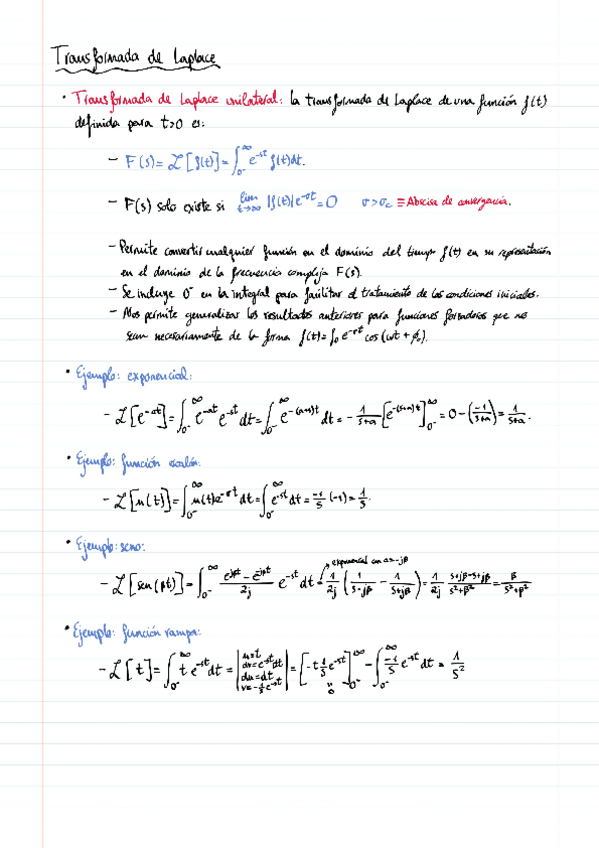 Transformada de Laplace
· Transformada de Laplace unilateral: la transformada de Laplace de una función f(t)
definida para t>0 es:
- F(s) = ℒ[f(t)] = ∫₀₋^∞ e^-st f(t)dt.
- F(s) solo existe si lim t→∞ |f(t)|e^-σt = 0 σ>σc ≡ Abscisa de convergencia.
- Permite convertir cualquier función en el dominio del tiempo f(t) en su representación
en el dominio de la frecuencia compleja F(s).
- Se incluye 0⁻ en la integral para facilitar el tratamiento de las condiciones iniciales.
- Nos permite generalizar los resultados anteriores para funciones forzadoras que no
sean necesariamente de la forma f(t) = f₀ e^-σt cos(ωt + φ₀).
· Ejemplo: exponencial:
- ℒ[e^-at] = ∫₀₋^∞ e^-at e^-st dt = ∫₀₋^∞ e^-(a+s)t dt = - 1/(s+a) [e^-(s+a)t]₀₋^∞ = 0 - (-1/(s+a)) = 1/(s+a).
· Ejemplo: función escalón:
- ℒ[u(t)] = ∫₀₋^∞ u(t)e^-st dt = ∫₀₋^∞ e^-st dt = -1/s (-1) = 1/s.
· Ejemplo: seno:
exponencial con a=-jβ
- ℒ[sen(βt)] = ∫₀₋^∞ (e^jβt - e^-jβt)/2j e^-st dt = 1/2j (1/(s-jβ) - 1/(s+jβ)) = 1/2j (s+jβ-s+jβ)/(s²+β²) = β/(s²+β²)
· Ejemplo: función rampa:
- ℒ[t] = ∫₀₋^∞ t e^-st dt = | u=t dv=e^-st dt du=dt v=-1/s e^-st | = [-t 1/s e^-st]₀₋^∞ - ∫₀₋^∞ -1/s e^-st dt = 1/s²